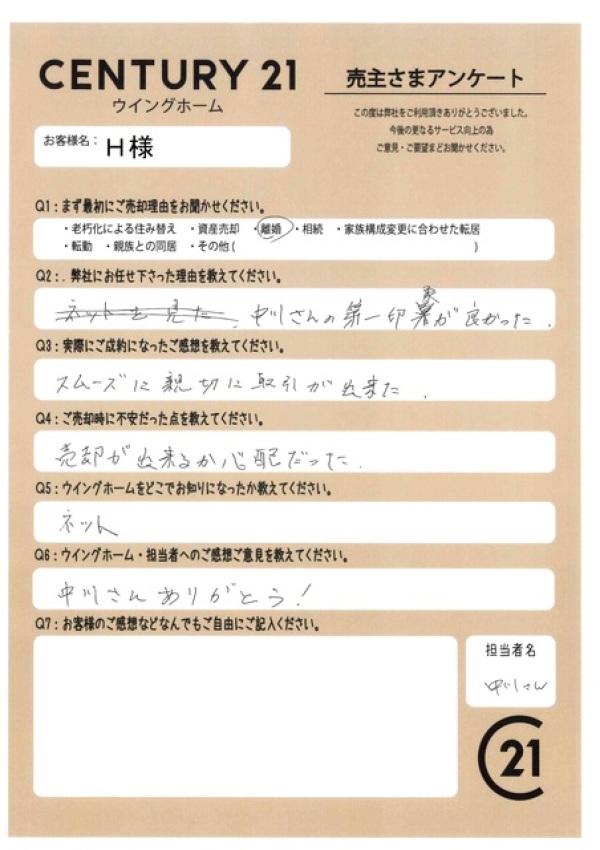 CENTURY 21
ウイングホーム
売主さまアンケート
この度は弊社をご利用頂きありがとうございました。
今後の更なるサービス向上の為
ご意見・ご要望までお聞かせください。
お客様名： H様
Q1：まず最初にご売却理由をお聞かせください。
・老朽化による住み替え ・資産売却 ・離婚 ・相続 ・家族構成変更に合わせた転居
・転勤 ・親族との同居 ・その他 ( )
Q2：. 弊社にお任せ下さった理由を教えてください。
ネットを見た. 中川さんの第一印象が良かった.
Q3：実際にご成約になったご感想を教えてください。
スムーズに親切に取引が出来た.
Q4：ご売却時に不安だった点を教えてください。
売却が出来るか心配だった.
Q5：ウイングホームをどこでお知りになったか教えてください。
ネット
Q6：ウイングホーム・担当者へのご感想ご意見を教えてください。
中川さんありがとう!
Q7：お客様のご感想などなんでもご自由にご記入ください。
担当者名
中川さん
21